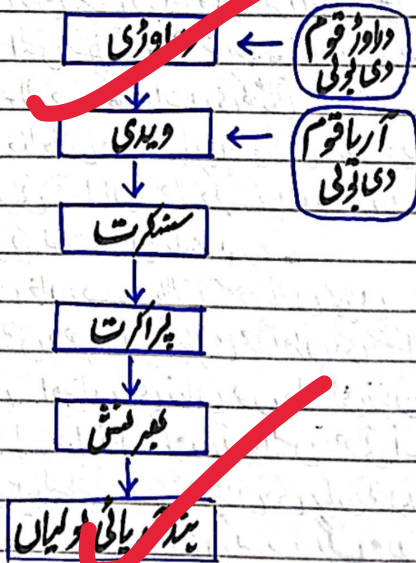 دراوڑی ← دراوڑ قوم
دی بولی
ویدی ← آریا قوم
دی بولی
سنسکرت
پراکرت
بھرنش
ہند آریائی بولیاں